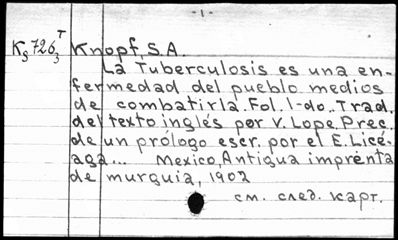 -1-
K₃726₃ᵀ Knopf, S. A.
La Tuberculosis es una en-
fermedad del pueblo medios
de combatirla. Fol. I-do. Trad.
del texto inglés por V. Lope. Prec.
de un prólogo escr. por el E. Licé-
aga... Mexico, Antigua imprenta
de murguia, 1902
см. след. карт.